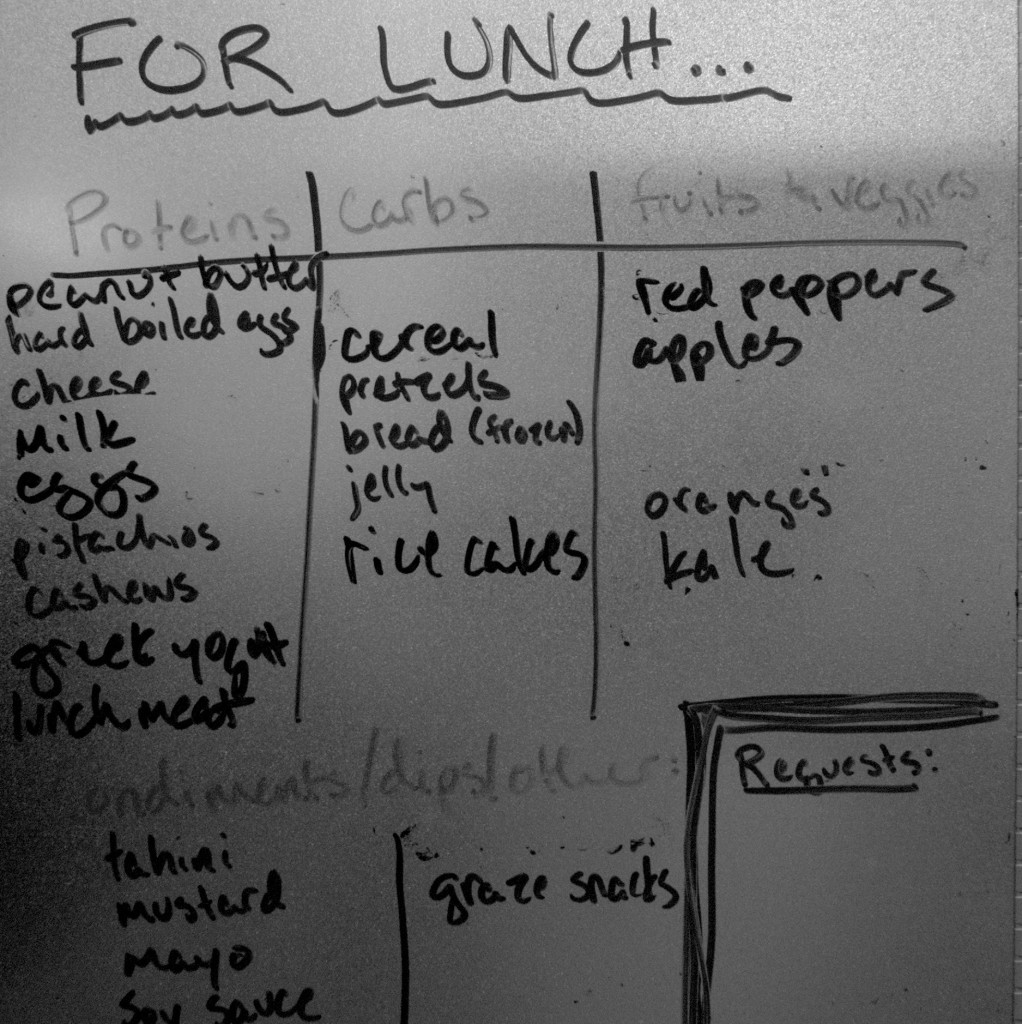 FOR LUNCH...
Proteins
peanut butter
hard boiled eggs
cheese
Milk
eggs
pistachios
cashews
greek yogurt
lunch meat
Carbs
cereal
pretzels
bread (frozen)
jelly
rice cakes
fruits & veggies
red peppers
apples
oranges
kale
ondiments/dips/other:
tahini
mustard
mayo
soy sauce
graze snacks
Requests: